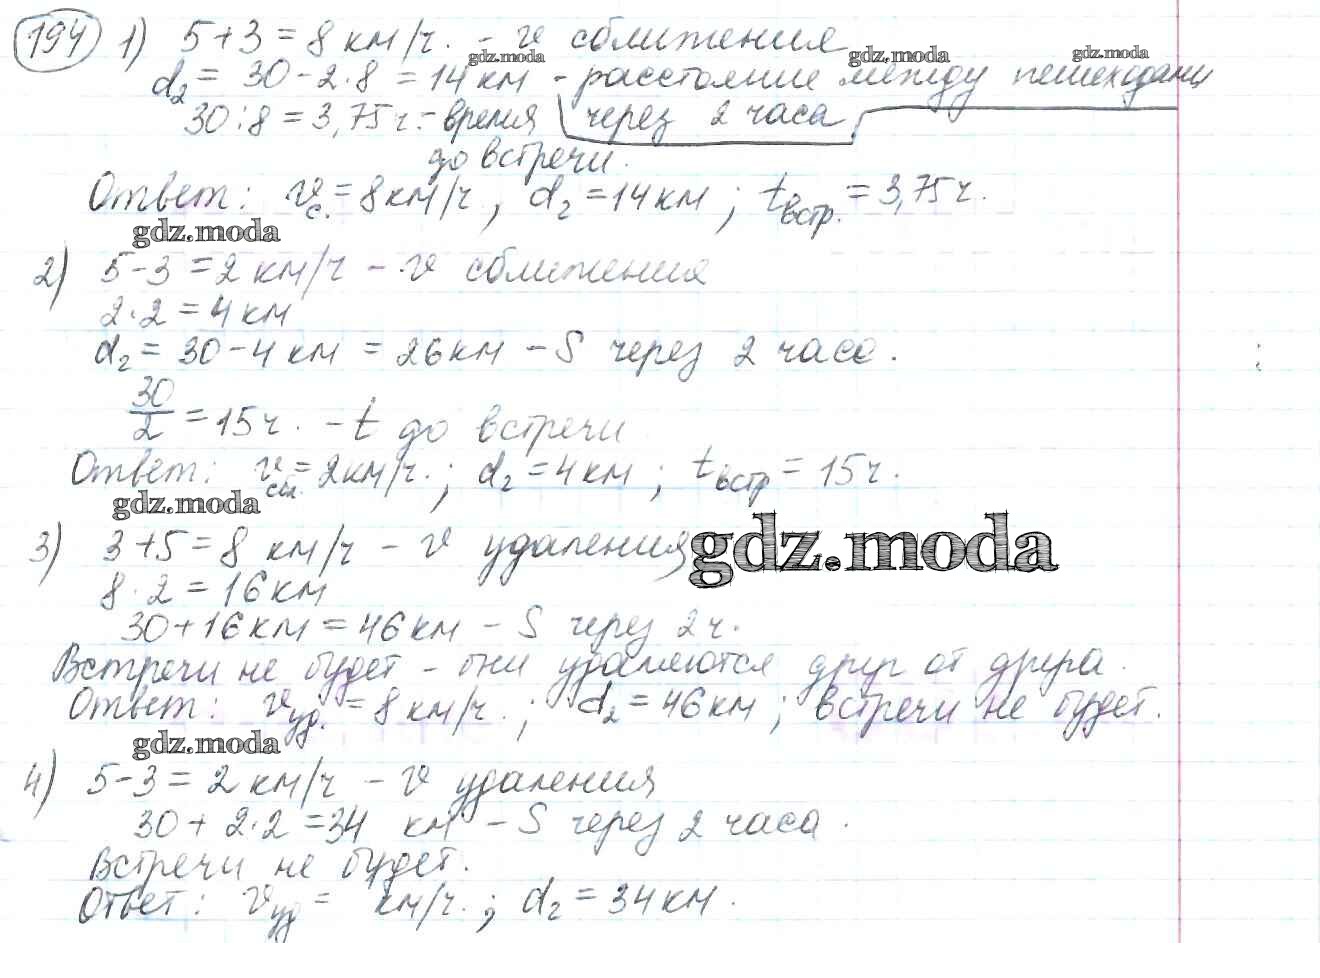 194 1) 5+3=8 км/ч. - v сближения
gdz.moda gdz.moda gdz.moda
d₂ = 30-2·8 = 14 км - расстояние между пешеходами
30:8 = 3,75ч. - время через 2 часа
до встречи.
Ответ: vс. = 8км/ч, d₂ = 14 км; tвстр. = 3,75ч.
gdz.moda
2) 5-3=2 км/ч - v сближения
2·2=4 км
d₂ = 30-4 км = 26 км - S через 2 часа.
30/2 = 15ч. - t до встречи
Ответ: vсбл. = 2км/ч.; d₂ = 4 км; tвстр = 15ч.
gdz.moda
3) 3+5=8 км/ч - v удаления
gdz.moda
8·2=16 км
30+16 км = 46 км - S через 2ч.
Встречи не будет - они удаляются друг от друга.
Ответ: vуд. = 8 км/ч.; d₂ = 46 км; встречи не будет.
gdz.moda
4) 5-3 = 2 км/ч - v удаления
30 + 2·2 = 34 км - S через 2 часа.
Встречи не будет.
Ответ: vуд = км/ч.; d₂ = 34 км.